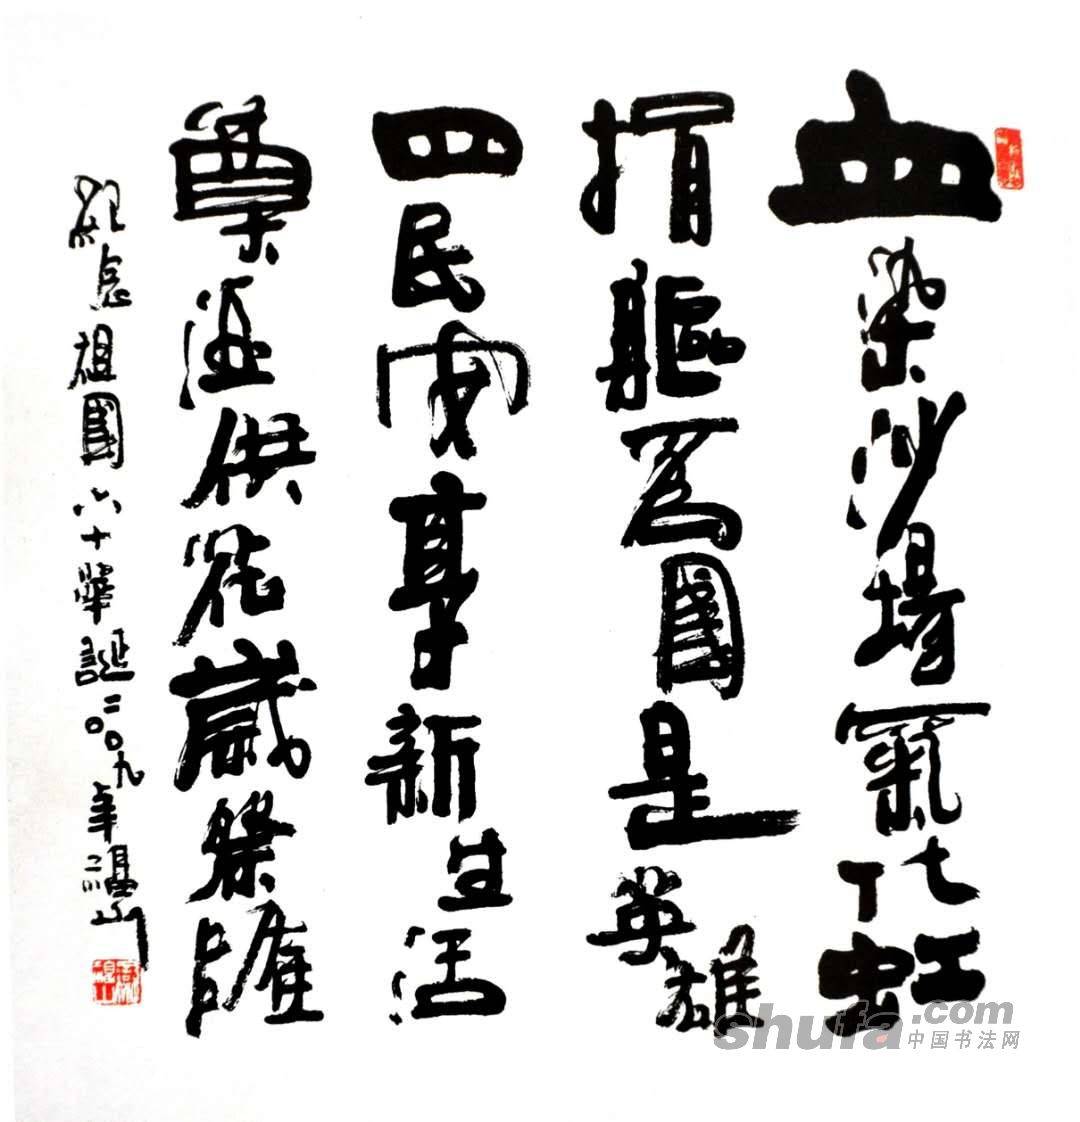 血染沙場氣化虹
捐軀為國是英雄
四民安享新生活
樽酒供花歲祭隆
紀念祖國六十華誕二〇〇九年
shufa.com
中国书法网